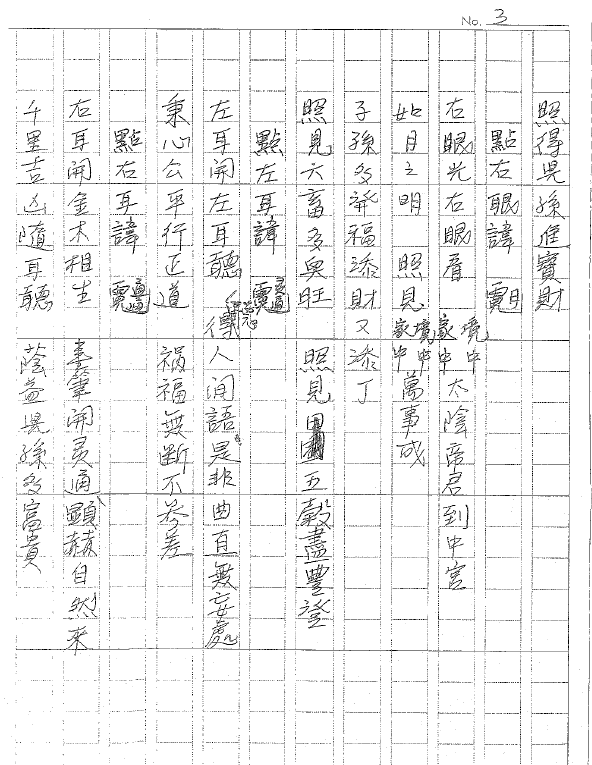 No. 3
照得兒孫進寶財
點右眼諱
右眼光右眼看 境中家中 太陰帝君到中宮
如月之明 照見 境中家中 萬事成
子孫多發福添財又添丁
照見六畜多興旺 照見田園五穀盡豐登
點左耳諱
左耳開左耳聽 得人间語是非曲直無妄處
秉心公平行正道 禍福無断不參差
點右耳諱
右耳開金木相生 開灵通顯赫自然來
千里吉凶隨耳聽 蔭益兒孫多富貴